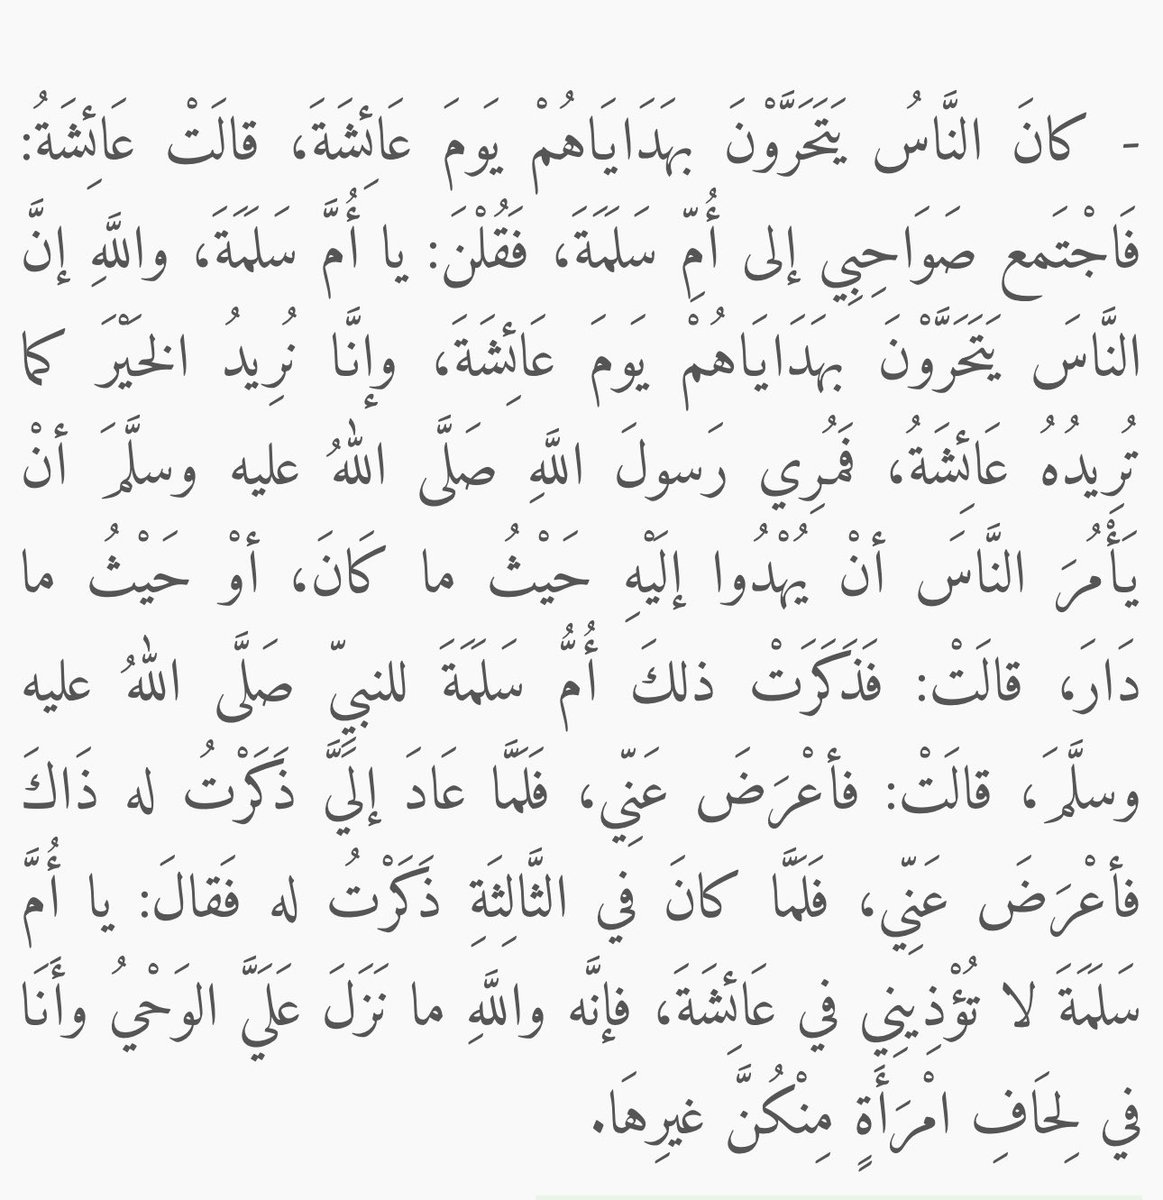 - كانَ النَّاسُ يَتَحَرَّوْنَ بهَدَايَاهُمْ يَومَ عَائِشَةَ، قالَتْ عَائِشَةُ:
فَاجْتَمع صَوَاحِبِي إلى أُمِّ سَلَمَةَ، فَقُلْنَ: يا أُمَّ سَلَمَةَ، واللَّهِ إنَّ
النَّاسَ يَتَحَرَّوْنَ بهَدَايَاهُمْ يَومَ عَائِشَةَ، وإنَّا نُرِيدُ الخَيْرَ كما
تُرِيدُهُ عَائِشَةُ، فَمُرِي رَسولَ اللَّهِ صَلَّى اللهُ عليه وسلَّمَ أنْ
يَأْمُرَ النَّاسَ أنْ يُهْدُوا إلَيْهِ حَيْثُ ما كَانَ، أوْ حَيْثُ ما
دَارَ، قالَتْ: فَذَكَرَتْ ذلكَ أُمُّ سَلَمَةَ للنبيِّ صَلَّى اللهُ عليه
وسلَّمَ، قالَتْ: فأعْرَضَ عَنِّي، فَلَمَّا عَادَ إلَيَّ ذَكَرْتُ له ذَاكَ
فأعْرَضَ عَنِّي، فَلَمَّا كانَ في الثَّالِثَةِ ذَكَرْتُ له فَقالَ: يا أُمَّ
سَلَمَةَ لا تُؤْذِينِي في عَائِشَةَ، فإنَّه واللَّهِ ما نَزَلَ عَلَيَّ الوَحْيُ وأَنَا
في لِحَافِ امْرَأَةٍ مِنْكُنَّ غيرِهَا.